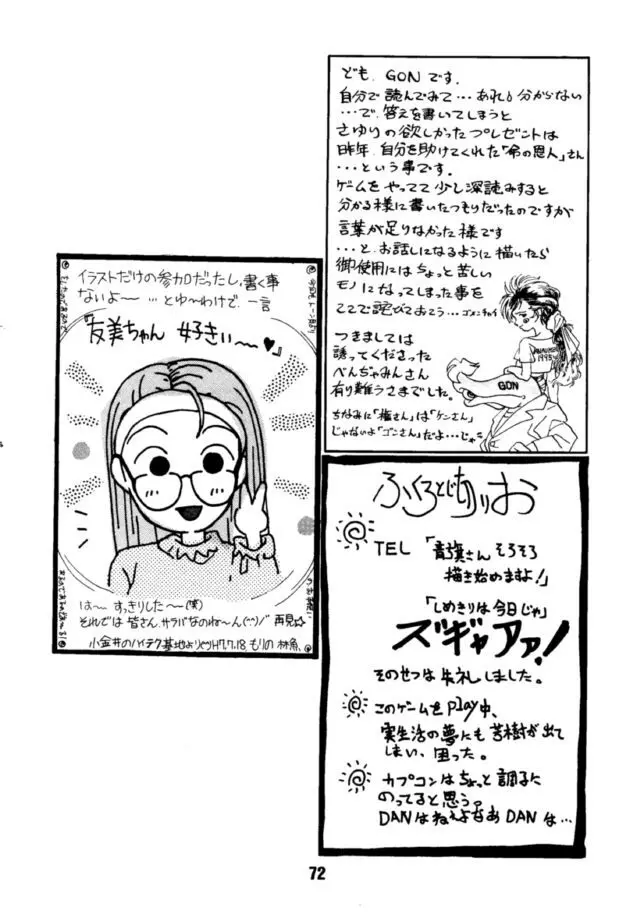 ども、GONです。
自分で読んでみて…あれ。分からない
…で、答えを書いてしまうと
さゆりの欲しかったプレゼントは
昨年、自分を助けてくれた「命の恩人」さん
…という事です。
ゲームをやってて少し深読みすると
分かる様に書いたつもりだったのですが
言葉が足りなかった様です
…と、お話しになるように描いたら
御使用にはちょっと苦しい
モノになってしまった事を
ここで詫びておこう…ゴメンナサイ
つきましては
誘ってくださった
べんぢゃみんさん
有り難うさまでした。
ちなみに「権さん」は「ケンさん」
じゃないよ「ゴンさん」だよ…じゃ
1995
GON
イラストだけの参加だったし、書く事
ないよ〜 …とゆ〜わけで、一言
『友美ちゃん 好きぃ〜〜♥』
は〜 すっきりした〜(笑)
それでは皆さん、サラバなのね〜ん(^^)/ 再見☆
小金井のハイテク基地よりやりH7.7.18 もりの 林魚.
ふくろとじきりお
TEL 「青旗さんそろそろ
描き始めますよ!」
「しめきりは今日じゃ」
ズギャアァ!
そのせつは失礼しました。
このゲームをplay中、
実生活の夢にも苦樹が出て
しまい、困った。
カプコンはちょっと調子に
のってると思う。
DANはねえよなあDANは…
72